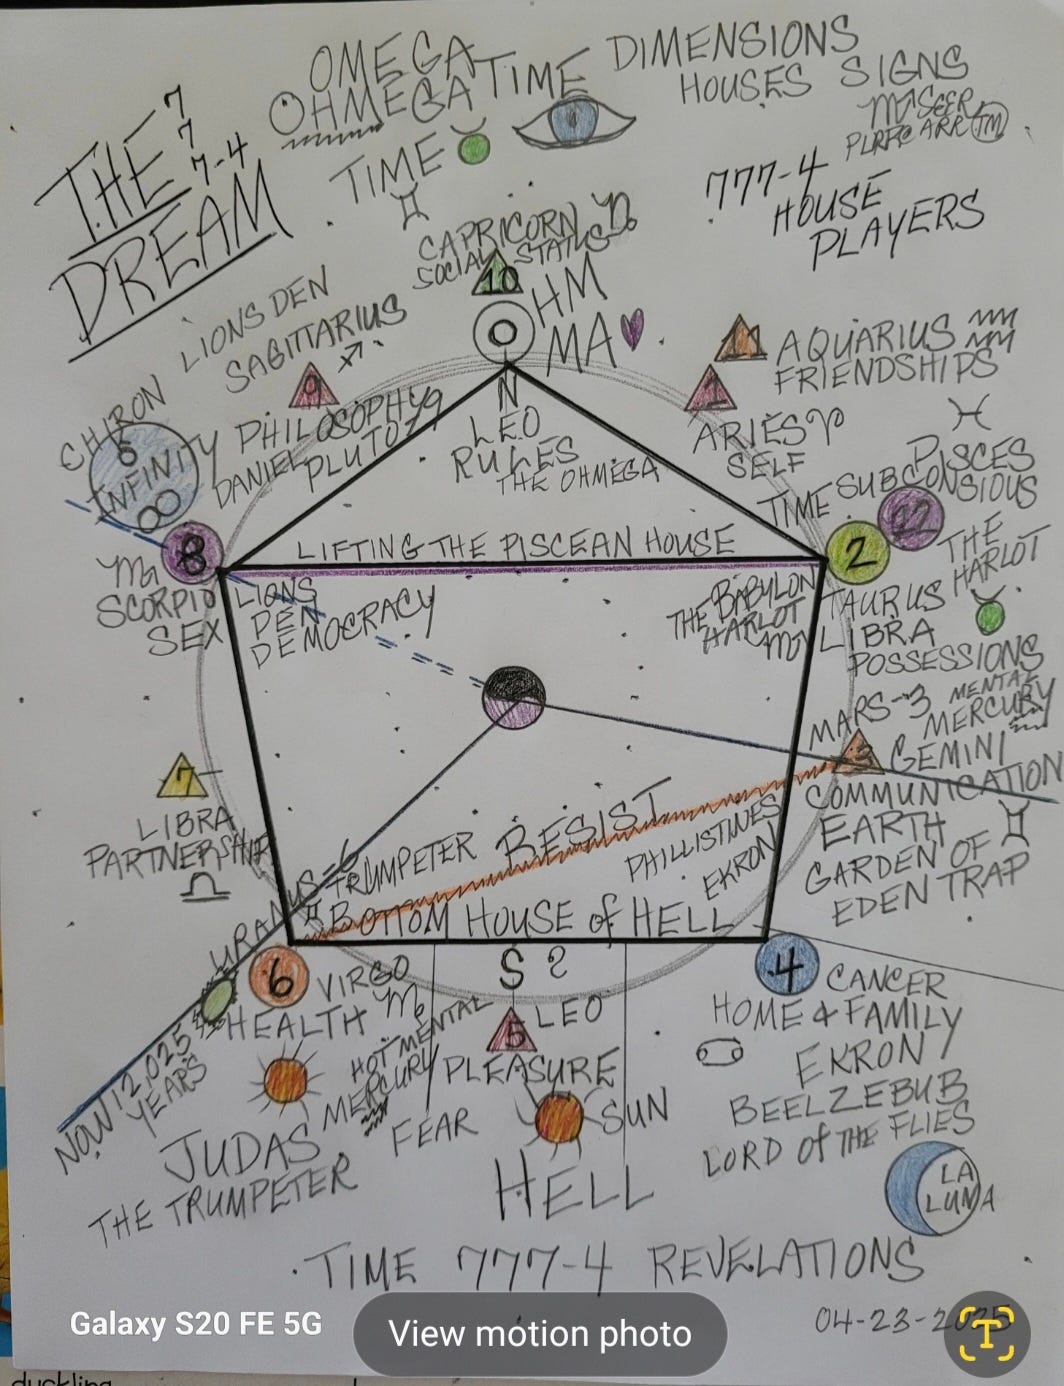 OMEGA
OHMEGA TIME DIMENSIONS
HOUSES SIGNS
THE 7
7
7-4
DREAM
TIME ♉
♊
SEER
TM
777-4
HOUSE
PLAYERS
CAPRICORN ♑
SOCIAL STATUS
10
O
OHM
MA
LIONS DEN
SAGITTARIUS
♐
9
PHILOSOPHY
DANIEL PLUTO 79
11
AQUARIUS
FRIENDSHIPS
1
ARIES ♈
SELF
♓
PISCES
SUBCONSIOUS
TIME
12
2
THE
HARLOT
CHIRON
6
INFINITY
∞
8
♏
SCORPIO
SEX
N
LEO
RULES
THE OHMEGA
LIFTING THE PISCEAN HOUSE
LIONS
DEN
DEMOCRACY
THE BABYLON
HARLOT
TAURUS ♉
LIBRA
POSSESSIONS
MARS-3 MENTAL
MERCURY
3
GEMINI
COMMUNICATION
♊
EARTH
GARDEN OF
EDEN TRAP
7
LIBRA
PARTNERSHIP
♎
URANUS-6
TRUMPETER RESIST
PHILLISTINES
EKRON
♊
BOTTOM HOUSE of HELL
6
VIRGO
HEALTH
S ?
5
LEO
PLEASURE
4
CANCER
HOME & FAMILY
♋
EKRON
BEELZEBUB
LORD of THE FLIES
NOW 12,025
YEARS
HOT MENTAL
MERCURY
FEAR
SUN
JUDAS
THE TRUMPETER
HELL
LA
LUMA
TIME 777-4 REVELATIONS
04-23-2025
Galaxy S20 FE 5G
View motion photo
T
duckling